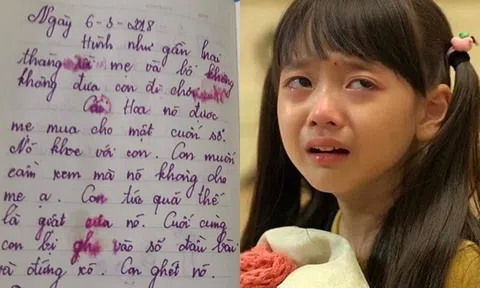 Ngày 6-3-2018
Hình như gần hai
tháng mẹ và bố không
không đưa con đi chơi
Cái Hoa nó được
mẹ mua cho một cuốn sổ.
Nó khoe với con. Con muốn
cầm xem mà nó không cho
mẹ ạ. Con tức quá thế
là giật của nó. Cuối cùng
con bị ghi vào sổ đầu bài
và đứng xó. Con ghét nó.